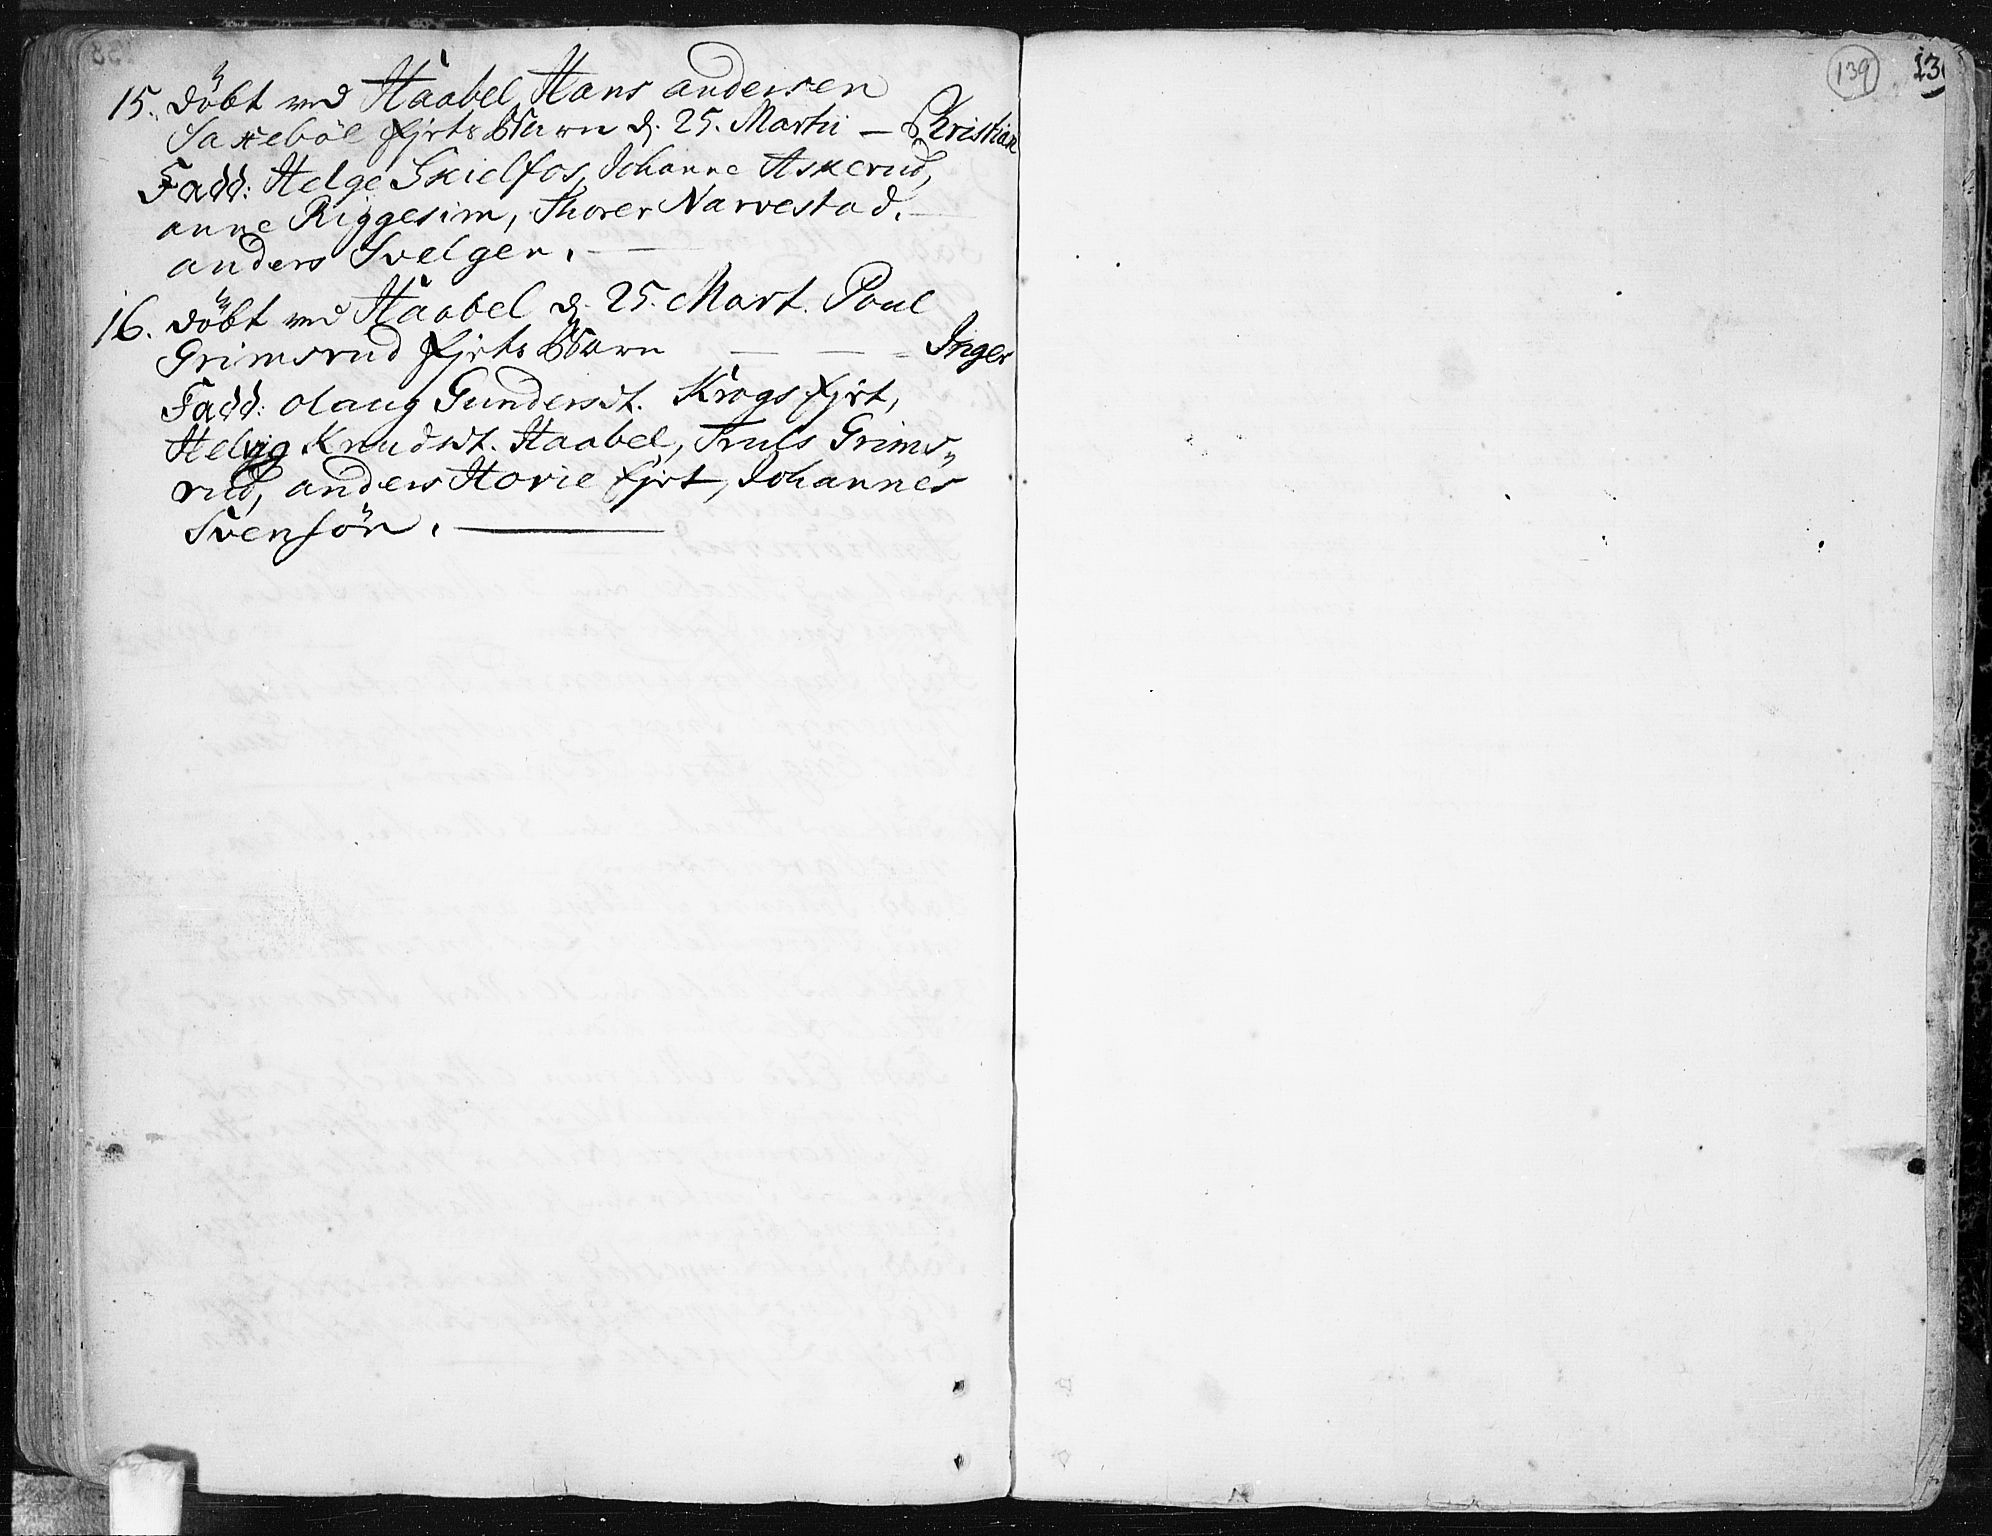 15. döbt ved Haabel Hans andersen
Saxebøl fjrts Barn d. 25. Martii — Christian
Fadd: Helge Skielfos, Johanne Askerud,
anne Riggesim, Thorer Narvestad.
anders Svelgen.
16. döbt ved Haabel d. 25. Mart. Poul
Grimsrud fjrts Barn — — Inger
Fadd: olaug Gundersdt. Krogs fjrt,
Helvig Knudsdt. Haabel, Truls Grims-
rud, anders Hovie fjrt, Johannes
Svensön.
139